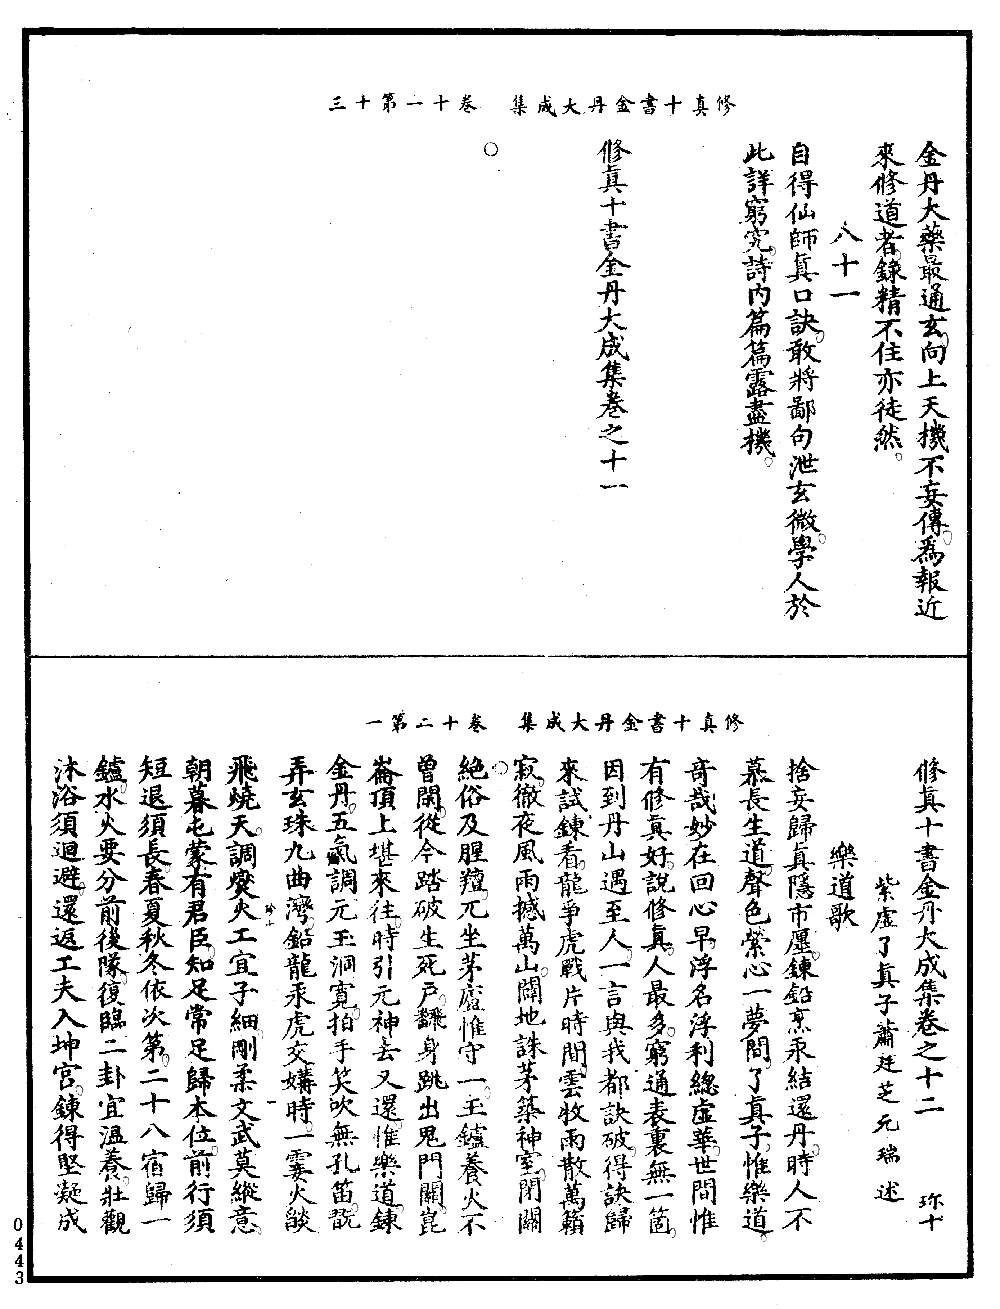 修真十書金丹大成集　卷十一第十三
金丹大藥最通玄向上天機不妄傳爲報近
來修道者鍊精不住亦徒然
八十一
自得仙師真口訣敢將鄙句泄玄微學人於
此詳窮究詩內篇篇露盡機
修真十書金丹大成集卷之十一
修真十書金丹大成集　卷十二第一
修真十書金丹大成集卷之十二　珎十
紫虛了真子蕭廷芝元瑞述
樂道歌
捨妄歸真隱市廛鍊鉛烹汞結還丹時人不
慕長生道聲色縈心一夢間了真子惟樂道
奇哉妙在回心早浮名浮利總虛華世間惟
有修真好說修真人最多窮通表裏無一箇
因到丹山遇至人一言與我都訣破得訣歸
來試鍊看龍爭虎戰片時間雲收雨散萬籟
寂徹夜風雨撼萬山闢地誅茅築神室閉關
絕俗及腥羶兀坐茅廬惟守一玉鑪養火不
曾閑從今踏破生死戶飜身跳出鬼門關崑
崙頂上堪來往時引元神去又還惟樂道鍊
金丹五氣調元玉洞寬拍手笑吹無孔笛翫
弄玄珠九曲灣鉛龍汞虎交媾時一霎火燄
飛燒天調燮火工宜子細剛柔文武莫縱意
朝暮屯蒙有君臣知足常足歸本位前行須
短退須長春夏秋冬依次第二十八宿歸一
鑪水火要分前後隊復臨二卦宜溫養壯觀
沐浴須迴避還返工夫入坤宮鍊得堅凝成
0443